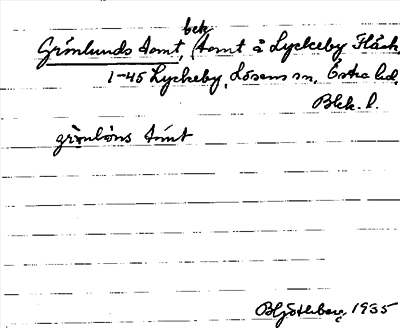 bek
Grönlunds tomt, (tomt å Lyckeby Fläck
1-45 Lyckeby, Lösens sn, Östra hd.
Blek. l.
grönlöns tómt
B Hjöthberg, 1935